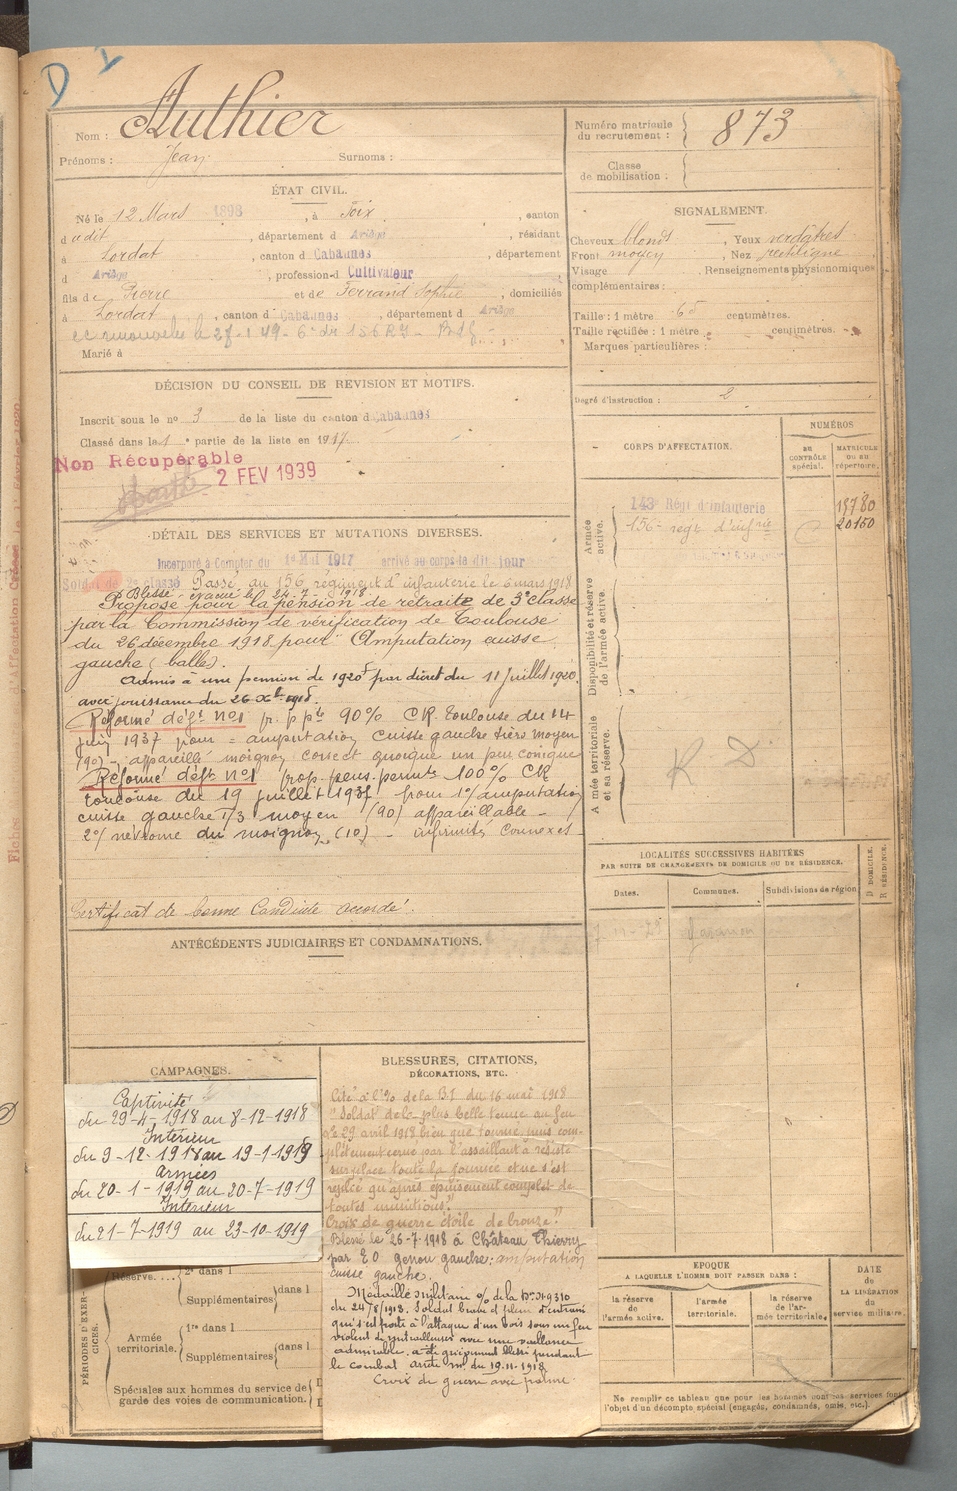 D 1
Nom : Authier
Prénoms : Jean Surnoms :
Numéro matricule du recrutement : 873
Classe de mobilisation :
ÉTAT CIVIL.
Né le 12 Mars 1898, à Foix, canton
dudit, département d Ariège, résidant
à Lordat, canton d Cabannes, département
d Ariège, profession d Cultivateur
fils de Pierre et de Ferrand Sophie, domiciliés
à Lordat, canton d Cabannes, département d Ariège
Marié à
SIGNALEMENT.
Cheveux blonds, Yeux verdâtres
Front moyen, Nez rectiligne
Visage , Renseignements physionomiques
complémentaires :
Taille : 1 mètre 65 centimètres.
Taille rectifiée : 1 mètre centimètres.
Marques particulières :
Degré d'instruction : 2
DÉCISION DU CONSEIL DE REVISION ET MOTIFS.
Inscrit sous le n° 3 de la liste du canton d Cabannes
Classé dans la 1e partie de la liste en 1917
Non Récupérable
2 FEV 1939
DÉTAIL DES SERVICES ET MUTATIONS DIVERSES.
Incorporé à Compter du 1er Mai 1917 arrivé au corps le dit jour
Soldat de 2e classe Passé au 156 régiment d'infanterie le 6 mars 1918
Blessé - évacué le 24-7-1918
Proposé pour la pension de retraite de 3e classe
par la Commission de vérification de Toulouse
du 26 décembre 1918 pour "Amputation cuisse
gauche (balle).
Admis à une pension de 1920f par décret du 11 juillet 1920
avec jouissance du 26 Xbre 1918.
Réformé déft n°1 pr. p pte 90% CR. Toulouse du 14
juin 1937 pour = amputation cuisse gauche tiers moyen
(90) - appareillé moignon correct quoique un peu conique
Réformé déft n°1 prop. pens. permte 100% CR
Toulouse du 19 juillet 1937 pour 1°/ amputation
cuisse gauche 1/3 moyen (90) appareillable -
2°/ névrome du moignon (10) - infirmités connexes
Certificat de bonne Conduite accordé.
CORPS D'AFFECTATION.
NUMÉROS
au CONTRÔLE spécial.
MATRICULE ou au répertoire.
Armée active.
143e Régt d'Infanterie 15780
156e regt d'infrie 20150
Disponibilité et réserve de l'armée active.
Armée territoriale et sa réserve.
R. D
LOCALITÉS SUCCESSIVES HABITÉES
PAR SUITE DE CHANGEMENTS DE DOMICILE OU DE RÉSIDENCE.
Dates. Communes. Subdivisions de région.
D DOMICILE.
R RÉSIDENCE.
ANTÉCÉDENTS JUDICIAIRES ET CONDAMNATIONS.
CAMPAGNES.
Captivité
du 29-4-1918 au 8-12-1918
Intérieur
du 9-12-1918 au 19-1-1919
Armées
du 20-1-1919 au 20-7-1919
Intérieur
du 21-7-1919 au 23-10-1919
BLESSURES, CITATIONS,
DÉCORATIONS, ETC.
Cité à l'o/o de la B.I du 16 mai 1918
"Soldat de la plus belle tenue au feu
Le 29 avril 1918 bien que tourné puis com-
plètement cerné par l'assaillant a résisté
sur place toute la journée et ne s'est
replié qu'après épuisement complet de
toutes munitions".
Croix de guerre étoile de bronze."
Blessé le 26-7-1918 à Château Thierry
par E O genou gauche: amputation
cuisse gauche.
Médaille Militaire
du 24/8/1918. Soldat brave et plein d'entrain
qui s'est porté à l'attaque d'un bois sous un feu
violent de mitrailleuses avec une vaillance
admirable. a été grièvement blessé pendant
le combat arrêté m. du 19.11.1918
Croix de guerre avec palme.
PÉRIODES D'EXERCICES.
Réserve....
2e dans l
Supplémentaires dans l
Armée territoriale.
1re dans l
Supplémentaires dans l
Spéciales aux hommes du service de
garde des voies de communication.
EPOQUE
A LAQUELLE L'HOMME DOIT PASSER DANS :
la réserve de l'armée active.
l'armée territoriale.
la réserve de l'armée territoriale.
DATE de LA LIBÉRATION du service militaire.
Ne remplir ce tableau que pour les hommes dont les services font
l'objet d'un décompte spécial (engagés, condamnés, omis, etc.).